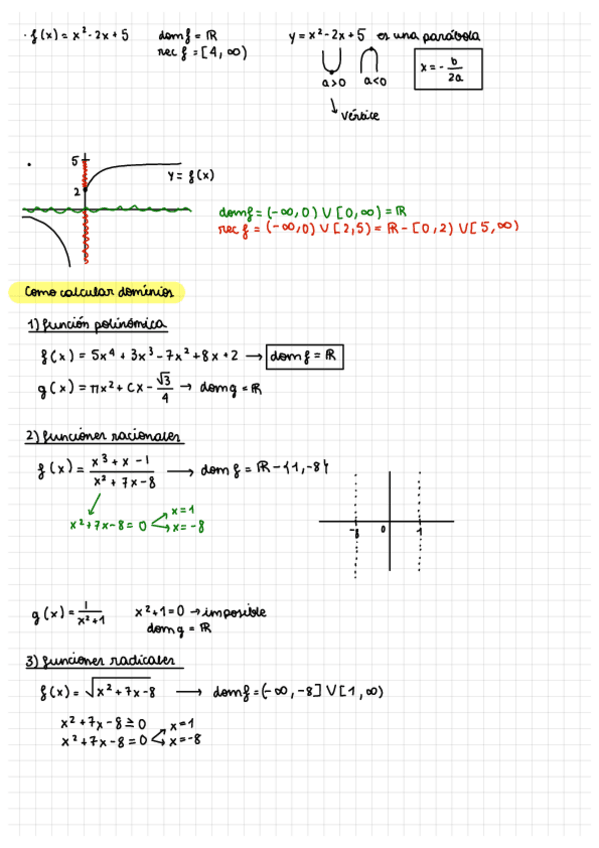 · f(x) = x² - 2x + 5   dom f = ℝ   y = x² - 2x + 5 es una parábola
rec f = [4, ∞)
a>0   a<0   x = - b/2a
vértice
5
2
y = f(x)
dom f = (-∞, 0) ∪ [0, ∞) = ℝ
rec f = (-∞, 0) ∪ [2, 5) = ℝ - [0, 2) ∪ [5, ∞)
Como calcular domínios
1) función polinómica
f(x) = 5x⁴ + 3x³ - 7x² + 8x + 2 → dom f = ℝ
g(x) = πx² + cx - √3/4 → dom g = ℝ
2) funciones racionales
f(x) = x³ + x - 1 / x² + 7x - 8 → dom f = ℝ - {1, -8}
x² + 7x - 8 = 0   x = 1
x = -8
-8 0 1
g(x) = 1 / x² + 1   x² + 1 = 0 → imposible
dom g = ℝ
3) funciones radicales
f(x) = √x² + 7x - 8 → dom f = (-∞, -8] ∪ [1, ∞)
x² + 7x - 8 ≥ 0   x = 1
x² + 7x - 8 = 0   x = -8